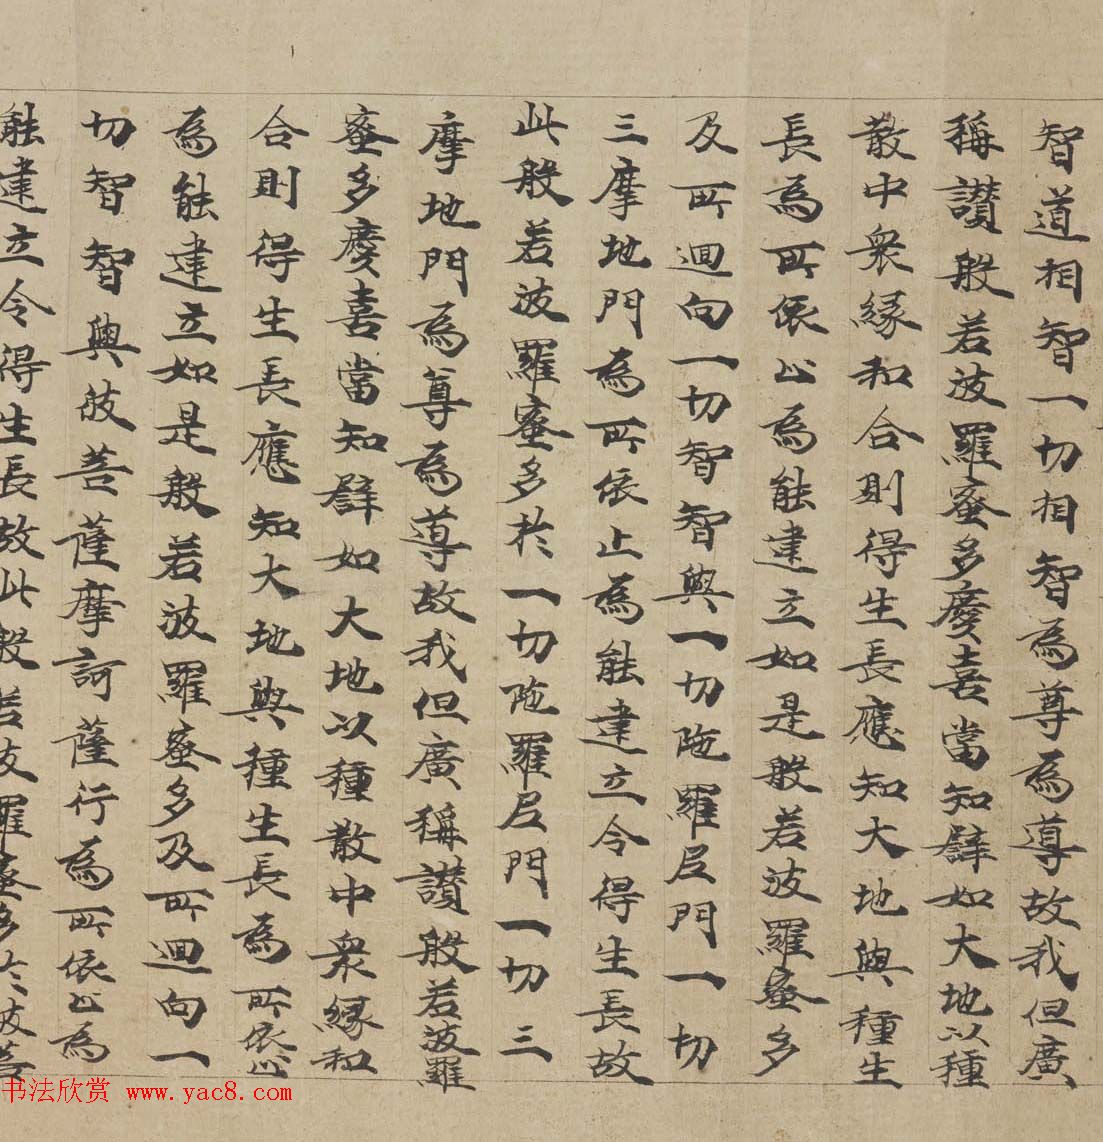 智道相智一切相智為尊為導故我但廣
稱讚般若波羅蜜多慶喜當知譬如大地以種
散中衆緣和合則得生長應知大地與種生
長為所依止為能建立如是般若波羅蜜多
及所迴向一切智智與一切陁羅尼門一切
三摩地門為所依止為能建立令得生長故
此般若波羅蜜多於一切陁羅尼門一切三
摩地門為尊為導故我但廣稱讚般若波羅
蜜多慶喜當知譬如大地以種散中衆緣和
合則得生長應知大地與種生長為所依止
為能建立如是般若波羅蜜多及所迴向一
切智智與彼菩薩摩訶薩行為所依止為
能建立令得生長故此般若波羅蜜多於彼菩
书法欣赏 www.yac8.com